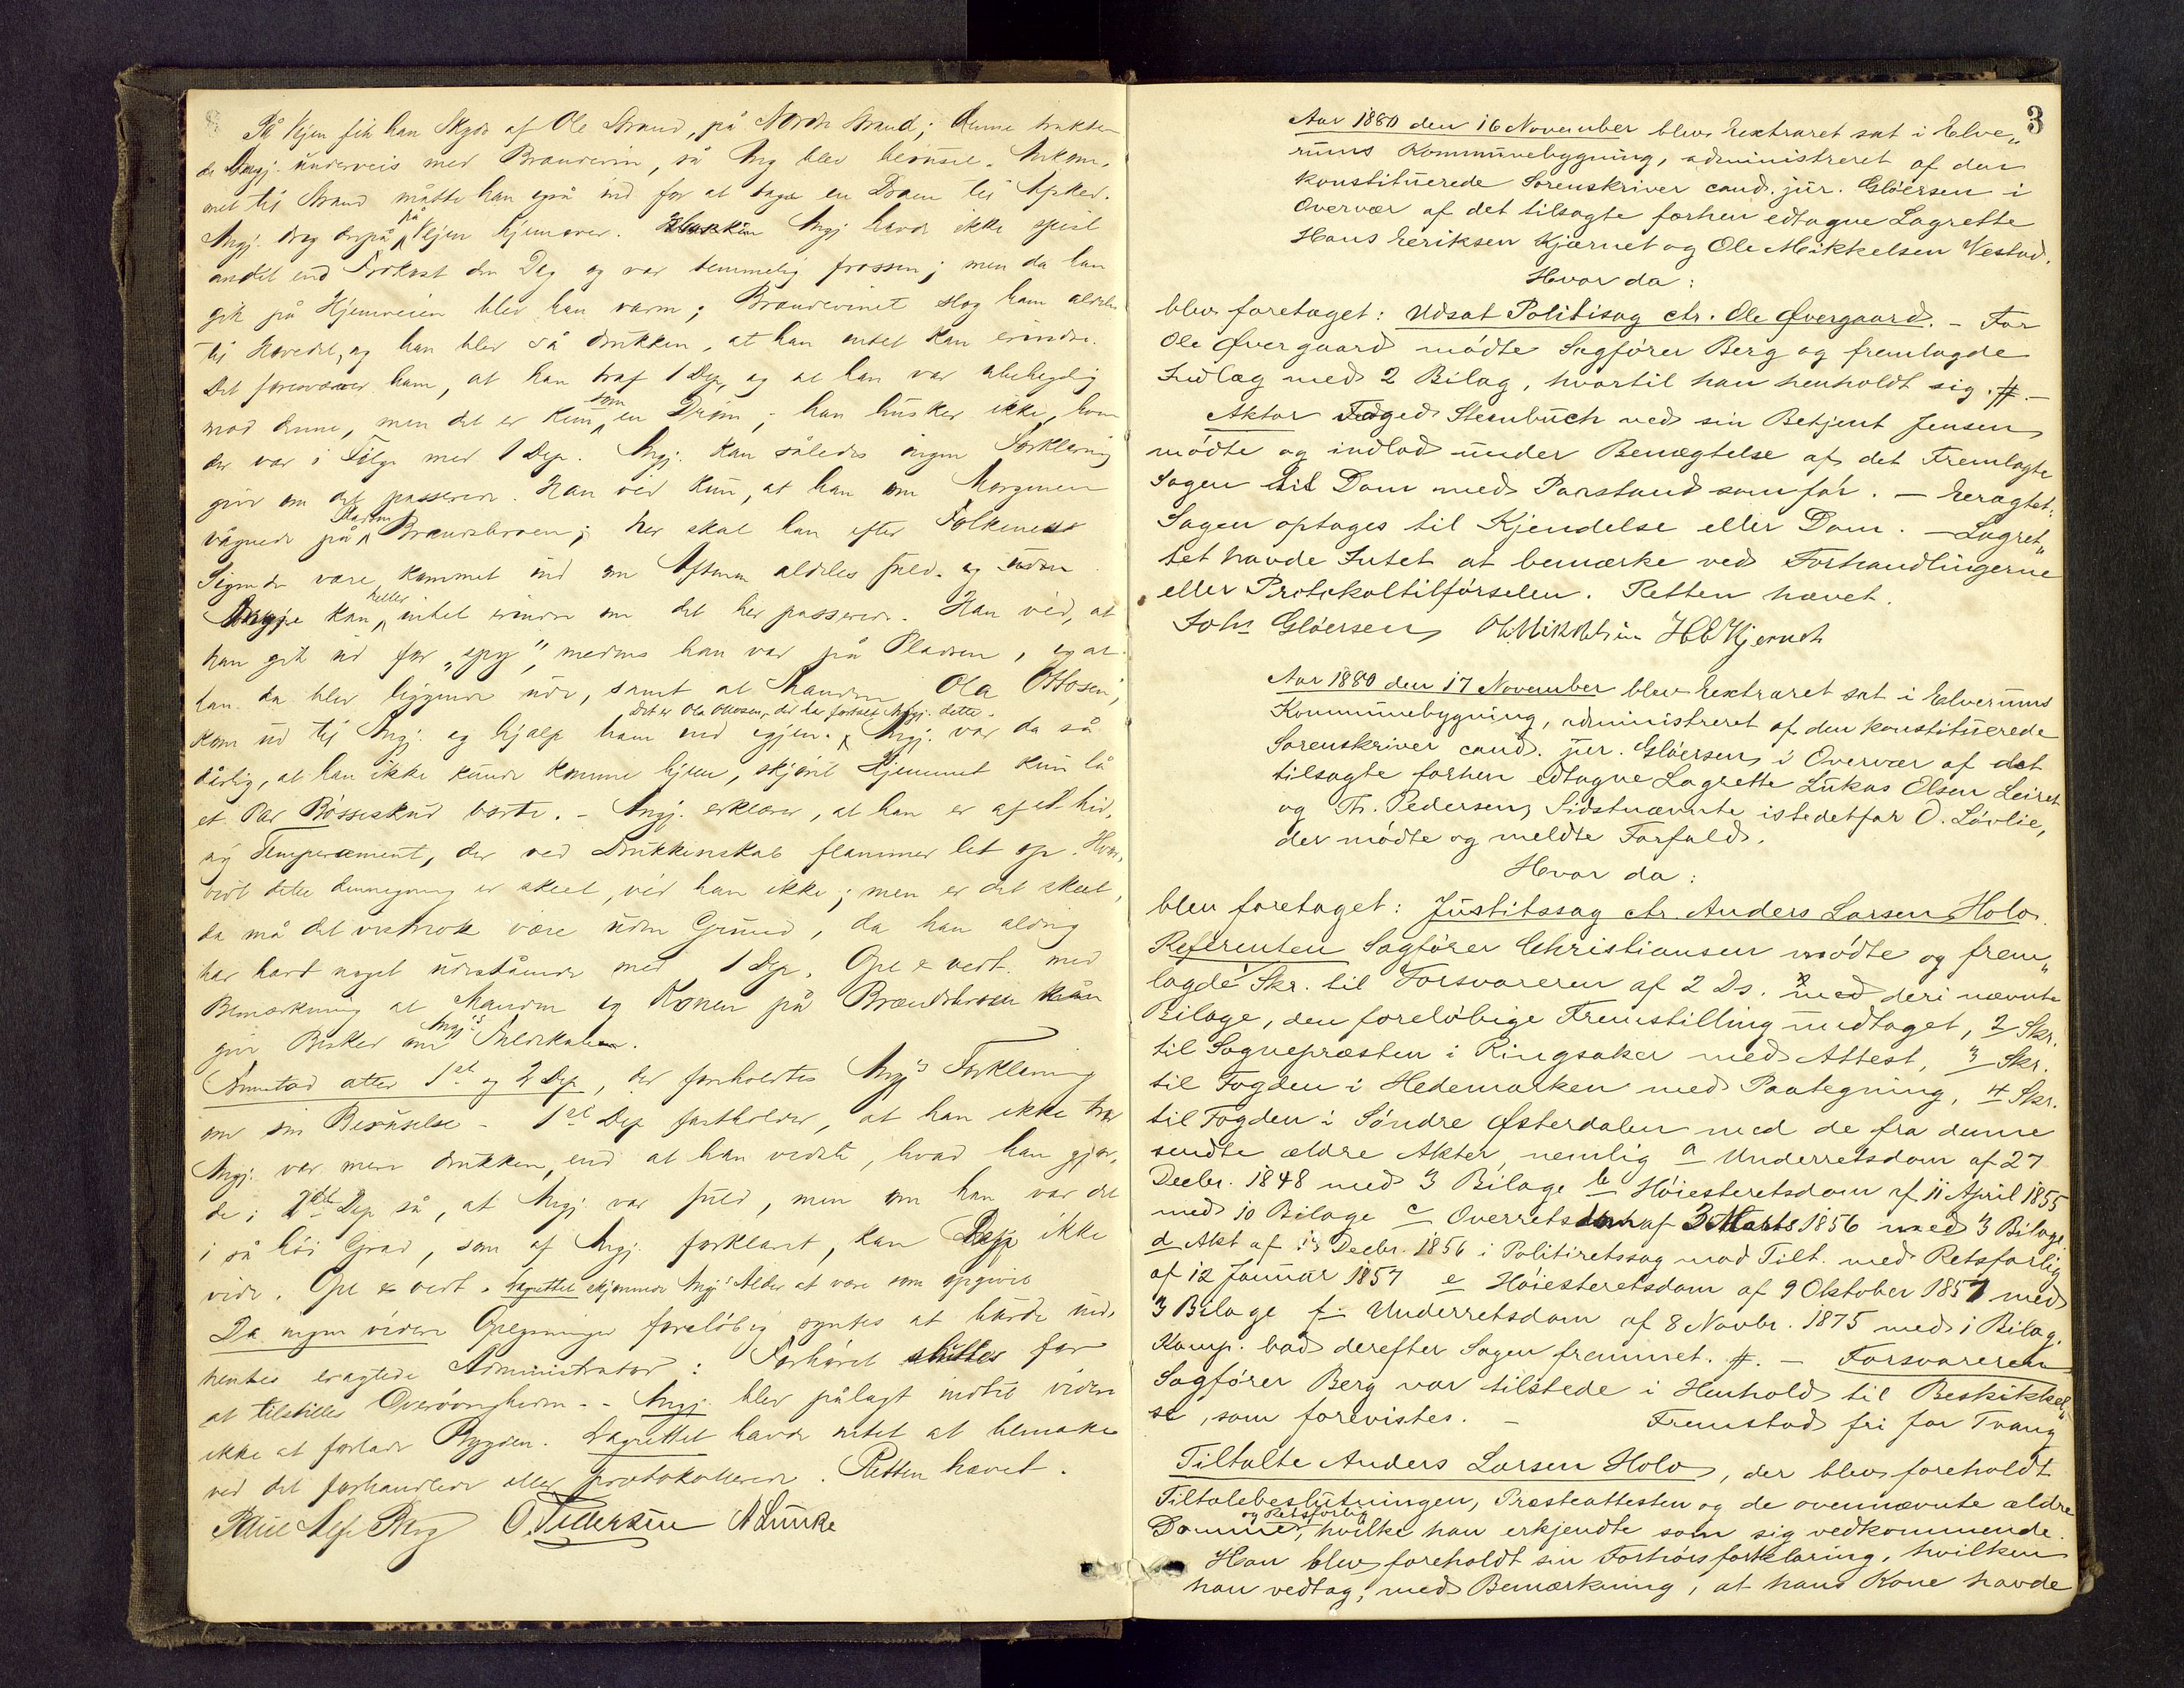 På Vejen fik han Skyds af Ole Strand, på Nordr Strand; denne trakte-
de Angj. underveis med Brændevin, så Ang blev beruset. Ankom-
met til Strand måtte han også ind for at tage en Dram til Afsked.
Angj. drog derpå på Vejen hjemover. Angj havde ikke spist
andet end Frokost den Dag og var temmelig frossen; men da han
gik på Hjemveien blev han varm; Brændevinet slog ham aldeles
til Hovedet, og han blev så drukken, at han intet kan erindre.
Det foresvæver ham, at han traf 1 Dep, og at han var ubehagelig
mod denne, men det er kun som en Drøm; han husker ikke, hvem
der var i Følge med 1 Dep. Angj. kan således ingen Forklaring
give om det passerede. Han ved kun, at han om Morgenen
vågnede på Pladsen Brændsbroen; her skal han efter Folkenes
Sigende være kommet ind om Aftenen aldeles fuld og uden
Angj. kan heller intet erindre om det her passerede. Han ved, at
han gik ud for „spy", medens han var på Pladsen, og at
han da blev liggende ude, samt at Manden Ola Ottosen,
Det er Ola Ottosen, der har fortalt Angj. dette.
kom ud til Angj. og hjalp ham ind igjen. Angj. var da så
dårlig, at han ikke kunde komme hjem, skjönt Hjemmet kun lå
et Par Bösseskud borte. – Angj. erklærer, at han er af et hid-
sig Temperament, der ved Drukkenskab flammer let op. Hvor-
vidt dette denne gang er skeet, véd han ikke; men er det skeet,
da må det vistnok være uden Grund, da han aldrig
har havt noget udestående med 1 Dep. Opl & vedt. med
Bemærkning at Manden og Konen på Brændsbroen kan
give Besked om Angj's Ædruskaben.
Fremstod atter 1ste og 2 Dep, der foreholdtes Angj's Forklaring
om sin Beruselse – 1ste Dep fastholder, at han ikke tror
Angj. var mere drukken, end at han vidste, hvad han gjor-
de; 2den Dep så, at Angj. var fuld, men om han var det
i så höi Grad, som af Angj. forklaret, kan Dep ikke
vide. Opl & vedt. Lagrettet skjønnede Angj's Alder at være som opgivet
Da ingen videre Oplysninger foreløbig syntes at burde ind-
hentes eragtede Administrator: Forhöret sluttes for
at tilstilles Overövrigheden. – Angj. blev pålagt indtil videre
ikke at forlade Bygden. Lagrettet havde intet at bemærke
ved det forhandlede eller protokollerede. Retten hævet.
Paul Berg O. Pedersen A Lunke
3
Aar 1880 den 16 November blev Extraret sat i Elve„
rums Kommunebygning, administreret af den
konstituerede Sorenskriver cand. jur. Glöersen i
Overvær af det tilsagte forhen edtagne Lagrette
Hans Eeriksen Kjærnet og Ole Mikkelsen Vestad.
Hvor da:
blev foretaget: Udsat Politisag ctr. Ole Øvergaard. – For
Ole Øvergaard mödte Sagförer Berg og fremlagde
Indlæg med 2 Bilag, hvortil han henholdt sig. #. –
Aktor Foged Steenbuch ved sin Betjent Jensen
mödte og indlod under Benægtelse af det Fremlagte
Sagen til Dom med Paastand som för. – Eragtet:
Sagen optages til Kjendelse eller Dom. – Lagret„
tet havde Intet at bemærke ved Forhandlingerne
eller Protokoltilförselen. Retten hævet.
Johs Glöersen O Mikkelsen H E Kjernet
Aar 1880 den 17 November blev Eextraret sat i Elverums
Kommunebygning, administreret af den konstituerede
Sorenskriver cand. jur. Glöersen i Overvær af det
tilsagte forhen edtagne Lagrette Lukas Olsen Leiret
og Th. Pedersen, Sidstnævnte istedetfor O. Lövlie,
der mödte og meldte Forfald.
Hvor da:
blev foretaget: Justitssag ctr. Anders Larsen Holo.
Referenten Sagförer Christiansen mödte og frem„
lagde 1 Skr. til Forsvareren af 2 Ds. med deri nævnte
Bilage, den foreløbige Fremstilling undtaget, 2 Skr.
til Sognepræsten i Ringsaker med Attest, 3 Skr.
til Fogden i Hedemarken med Paategning, 4 Skr.
til Fogden i Söndre Østerdalen med de fra denne
sendte ældre Akter, nemlig a Underretsdom af 27
Decbr. 1848 med 3 Bilage b Höiesteretsdom af 11 April 1855
med 10 Bilage c Overretsdom af 3 Marts 1856 med 3 Bilage
d Akt af 13 Decbr. 1856 i Politiretssag mod Tilt. med Retsforlig
af 12 Januar 1857 e Höiesteretsdom af 9 Oktober 1857 med
3 Bilage f. Underretsdom af 8 Novbr. 1875 med 1 Bilag.
Komp. bad derefter Sagen fremmet. #. – Forsvareren
Sagförer Berg var tilstede i Henhold til Beskikkel„
se, som forevistes. – Fremstod fri for Tvang
Tiltalte Anders Larsen Holo, der blev foreholdt
Tiltalebeslutningen, Præsteattesten og de ovennævnte ældre
Domme, og Retsforlig hvilke han erkjendte som sig vedkommende.
Han blev foreholdt sin Forhörsforklaring, hvilken
han vedtog, med Bemærkning, at hans Kone havde